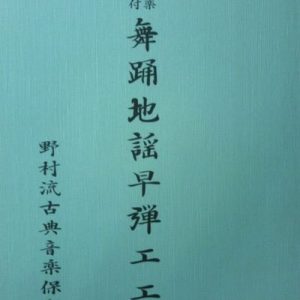 楽
付
舞踊地謡早弾工工
野村流古典音楽保